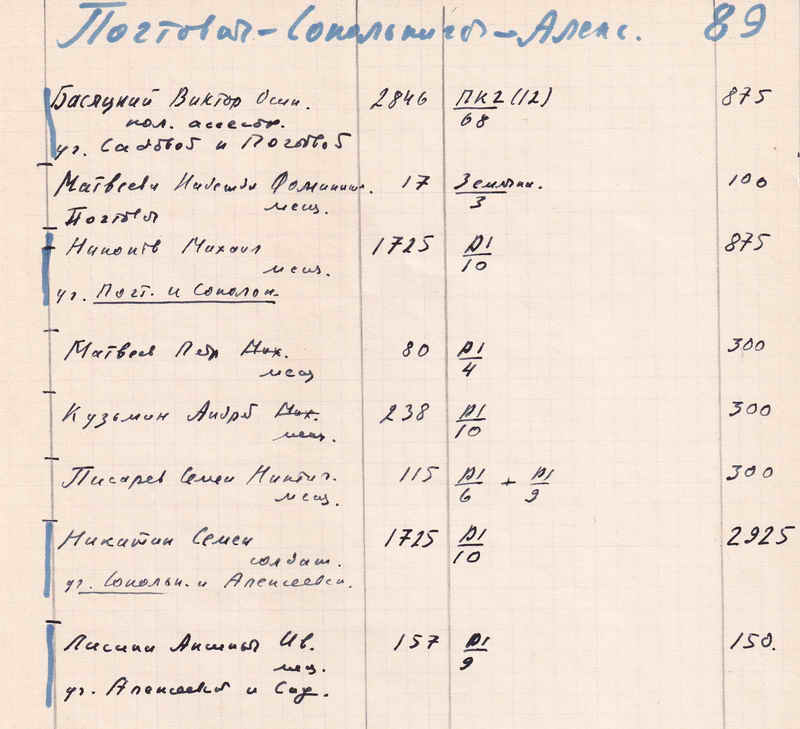 Почтовая - Сокольничья - Алекс. 89
Басяцкий Виктор Осип. 2846 ПК2 (12) 875
кол. ассесор. 68
уг. Садовой и Почтовой
Матвеева Надежда Фоминиш. 17 Землян. 100
мещ. 3
Почтовая
Никонов Михаил 1725 Д1 875
мещ. 10
уг. Почт. и Соколон.
Матвеев Петр Мих. 80 Д1 300
мещ 4
Кузьмин Андрей Мих. 238 Д1 300
мещ. 10
Писарев Семен Никтич. 115 Д1 + Д1 300
мещ. 6 9
Никитин Семен 1725 Д1 2925
солдат. 10
уг. Сокольн. и Алексеевск.
Лисина Ив. 157 Д1 150.
мещ. 9
уг. Алексеевской и Сад.